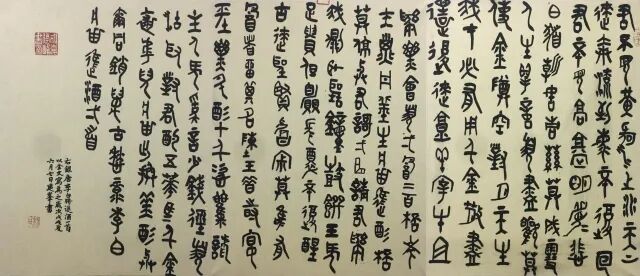 君不見黃河之水天上
來奔流到海不復回
君不見高堂明鏡悲
白髮朝如青絲暮成雪
人生得意須盡歡莫
使金樽空對月天生
我材必有用千金散盡
還復來烹羊宰牛且
爲樂會須一飲三百杯岑
夫子丹丘生將進酒杯
莫停與君歌一曲請君爲
我傾耳聽鐘鼓饌玉
不足貴但願長醉不復醒
古來聖賢皆寂寞惟有
飲者留其名陳王昔時宴
平樂斗酒十千恣歡謔
主人何爲言少錢徑須
沽取對君酌五花馬千金
裘呼兒將出換美酒與
爾同銷萬古愁唐李白
將進酒一首
右錄唐李白將進酒一首
以金文寫爲之歲次戊戌夏
六月七日書